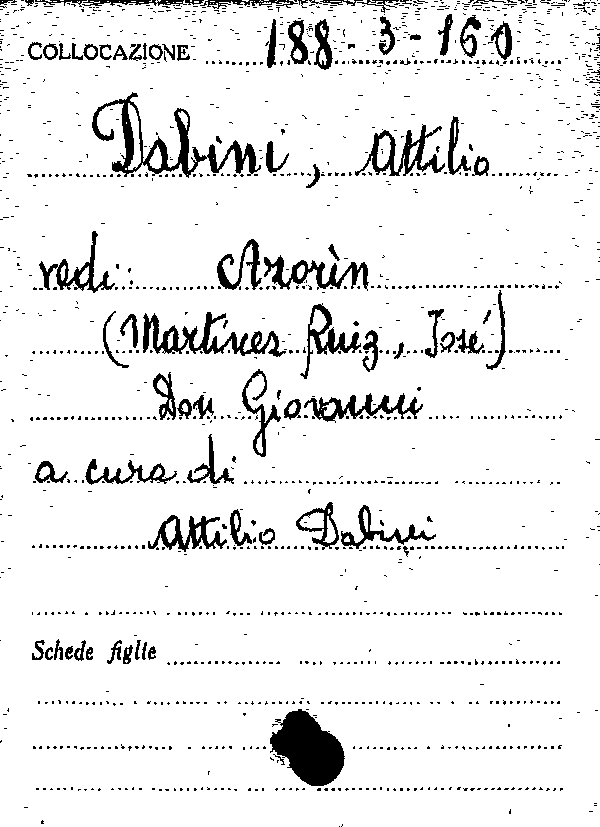 COLLOCAZIONE 188-3-160
Dabini, Attilio
vedi: Azorìn
(Martinez Ruiz, José)
Don Giovanni
a cura di
Attilio Dabini
Schede figlie